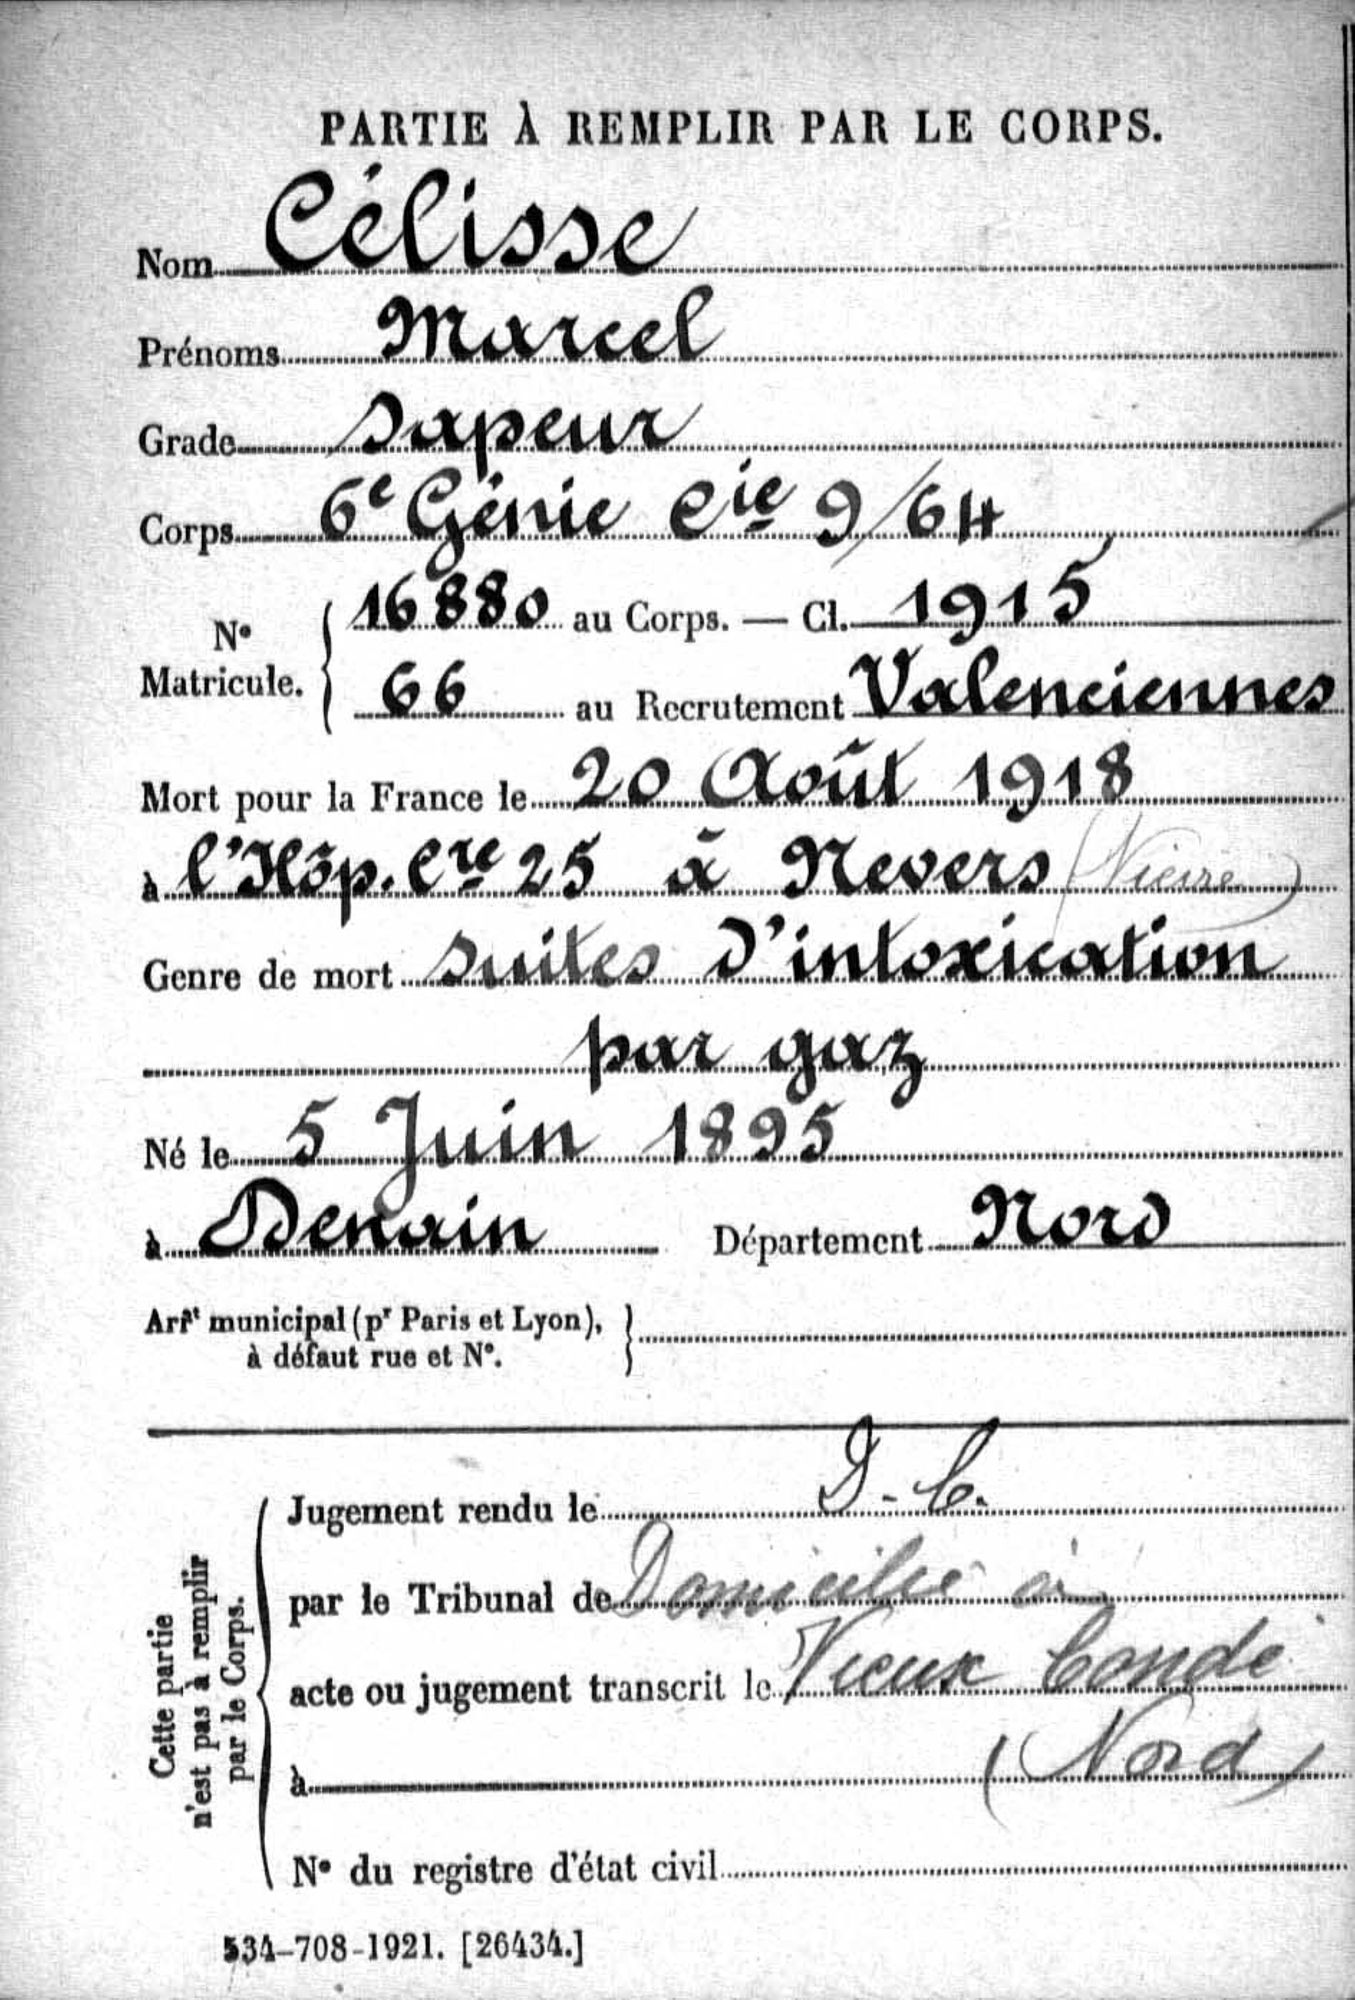 PARTIE À REMPLIR PAR LE CORPS.
Nom Célisse
Prénoms Marcel
Grade Sapeur
Corps 6e Génie Cie 9/64
No Matricule. 16880 au Corps. — Cl. 1915
66 au Recrutement Valenciennes
Mort pour la France le 20 Août 1918
à l'Hôp. Cre 25 à Nevers (Nièvre)
Genre de mort suites d'intoxication
par gaz
Né le 5 Juin 1895
à Denain Département Nord
Arrt municipal (pr Paris et Lyon),
à défaut rue et No.
Cette partie
n'est pas à remplir
par le Corps.
Jugement rendu le D.C.
par le Tribunal de Domicilié à
acte ou jugement transcrit le Vieux Condé
à (Nord)
No du registre d'état civil
534-708-1921. [26434.]